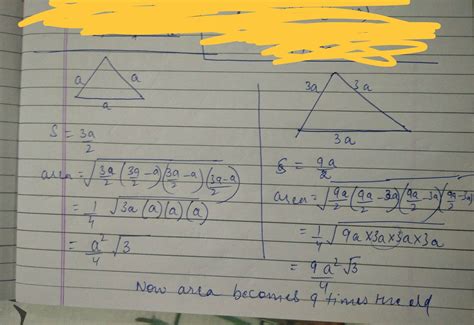 a a
a
S = 3a/2
area = √(3a/2 (3a/2 - a)(3a/2 - a)(3a/2 - a))
= 1/4 √(3a (a)(a)(a))
= a²/4 √3
3a 3a
3a
S = 9a/2
area = √(9a/2 (9a/2 - 3a)(9a/2 - 3a)(9a/2 - 3a))
= 1/4 √(9a × 3a × 3a × 3a)
= 9a²/4 √3
Now area becomes 9 times the old